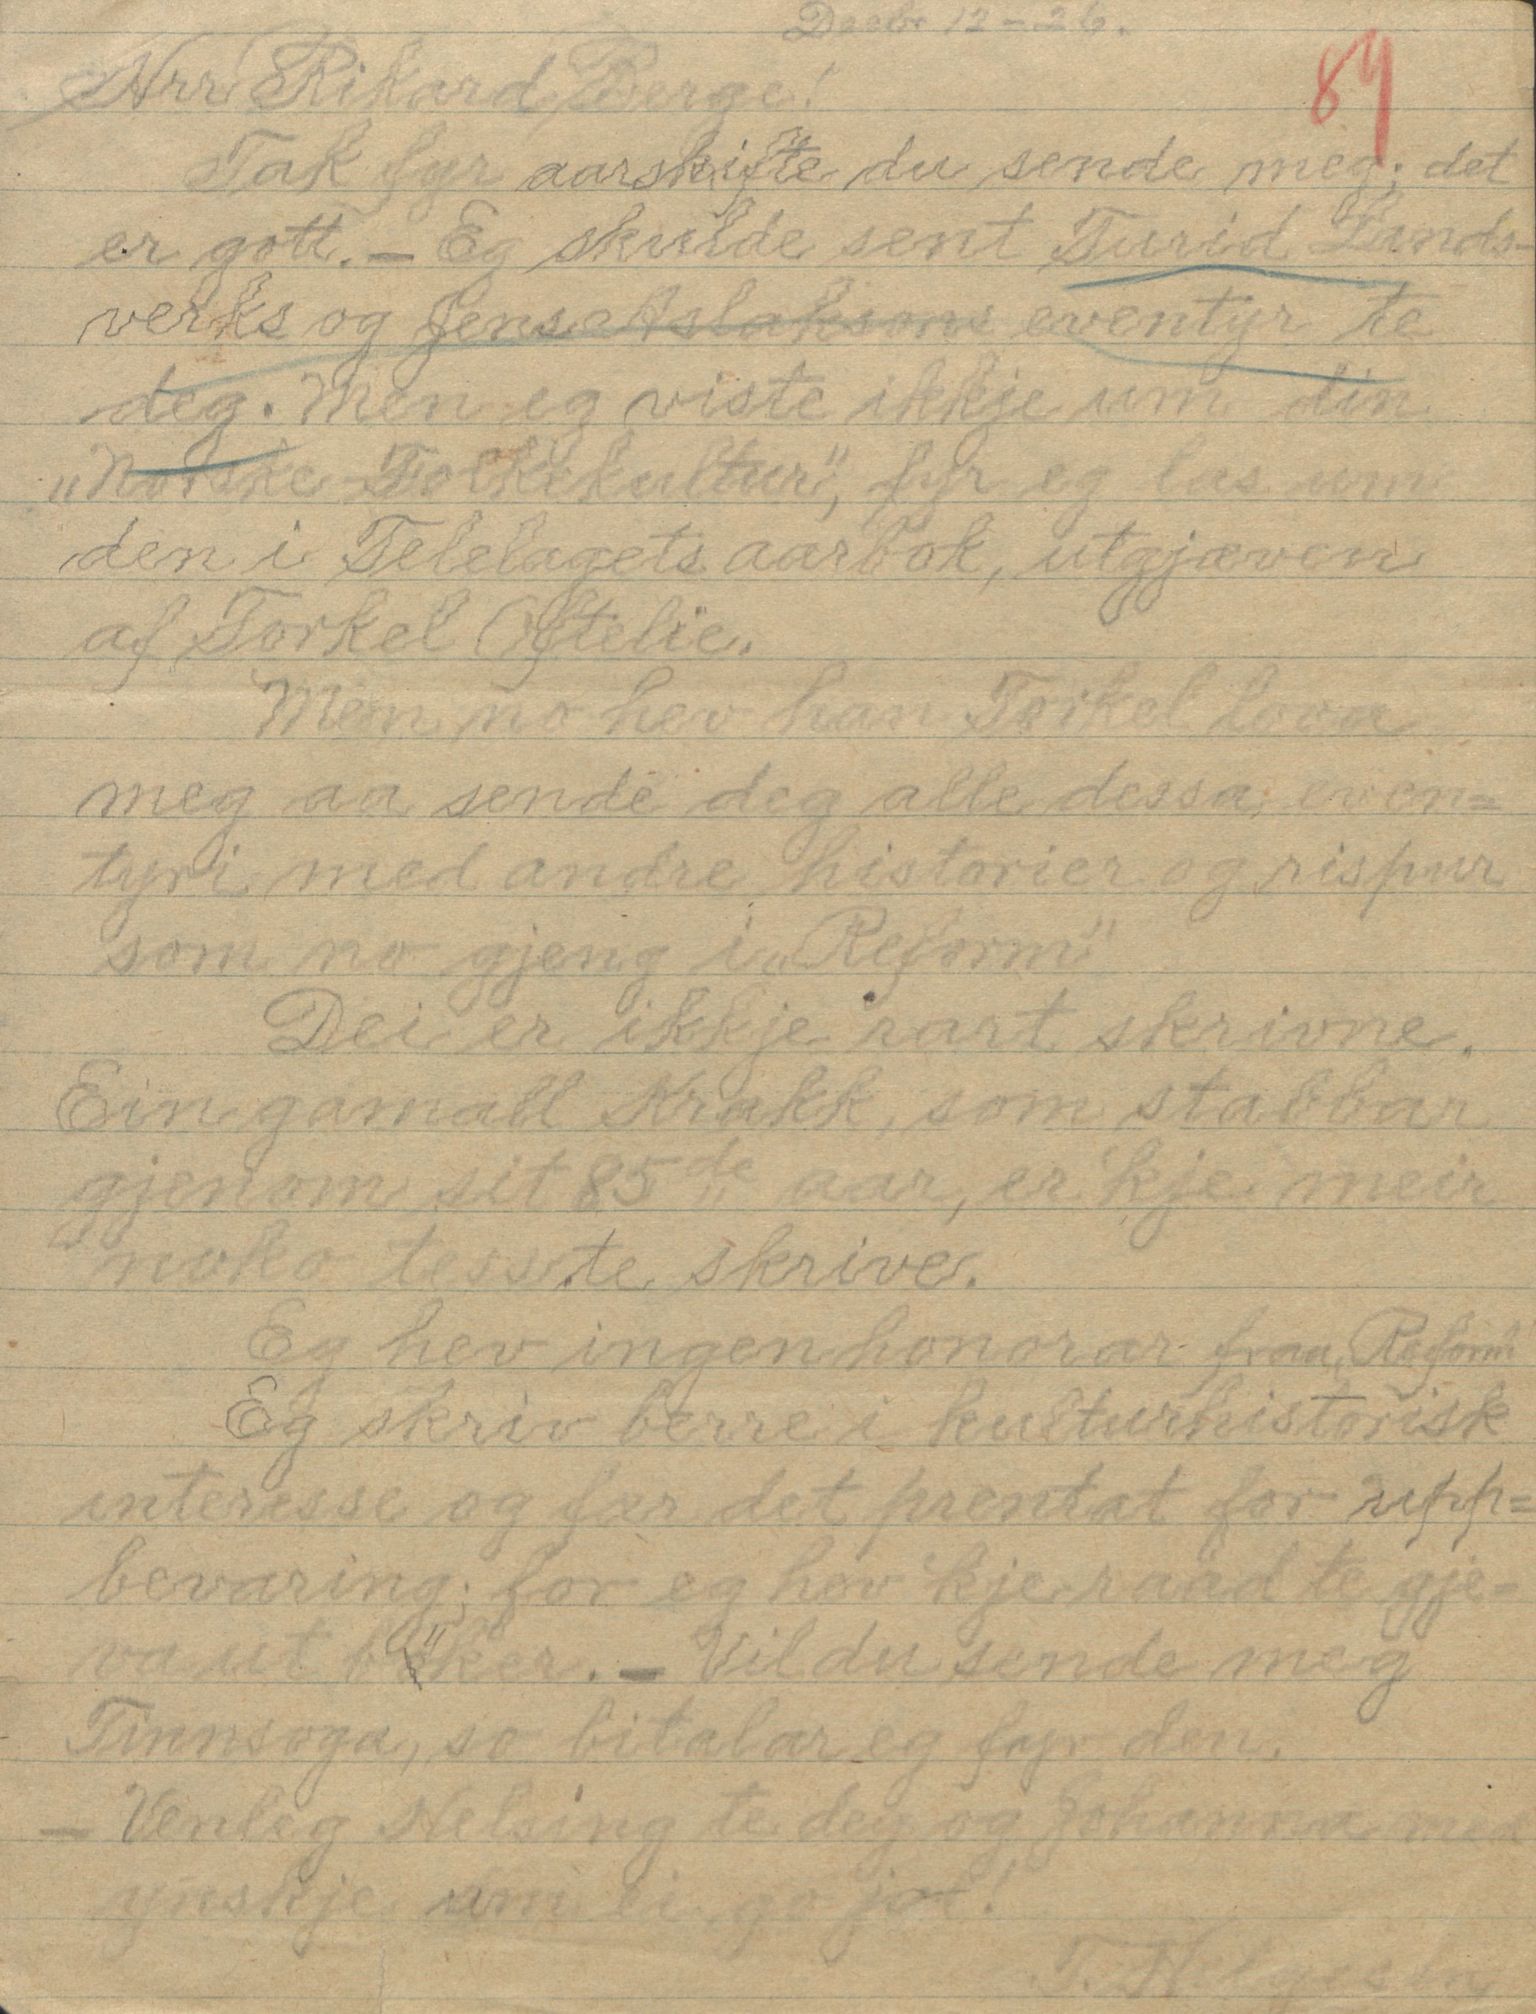 Decbr 12 - 26.
89
Hrr Rikard Berge!
Tak fyr aarskifte du sende meg; det
er gott. — Eg skulde sent Turid Lands-
verks og Jens Aslaksons eventyr te
deg. Men eg viste ikkje um din
„Norske Folkekultur“, fyr eg las um
den i Telelagets aarbok, utgjæven
af Torkel Oftelie.
Men no hev han Torkel lova
meg aa sende deg alle dessa even=
tyri med andre historier og rispur
som no gjeng i „Reform“
Dei er ikkje rart skrivne.
Ein gamall Krakk, som stabbar
gjenom sit 85de aar, er 'kje meir
noko tess te skrive.
Eg hev ingen honorar fraa „Reform“
Eg skriv berre i kulturhistorisk
interesse og fær det prentat for upp=
bevaring; for eg hev 'kje raad te gje=
va ut böker. — Vil du sende meg
Tinnsoga, so bitalar eg fyr den.
— Venleg Helsing te deg og Johanna med
ynskje um ei go jol!
T. Helgesen